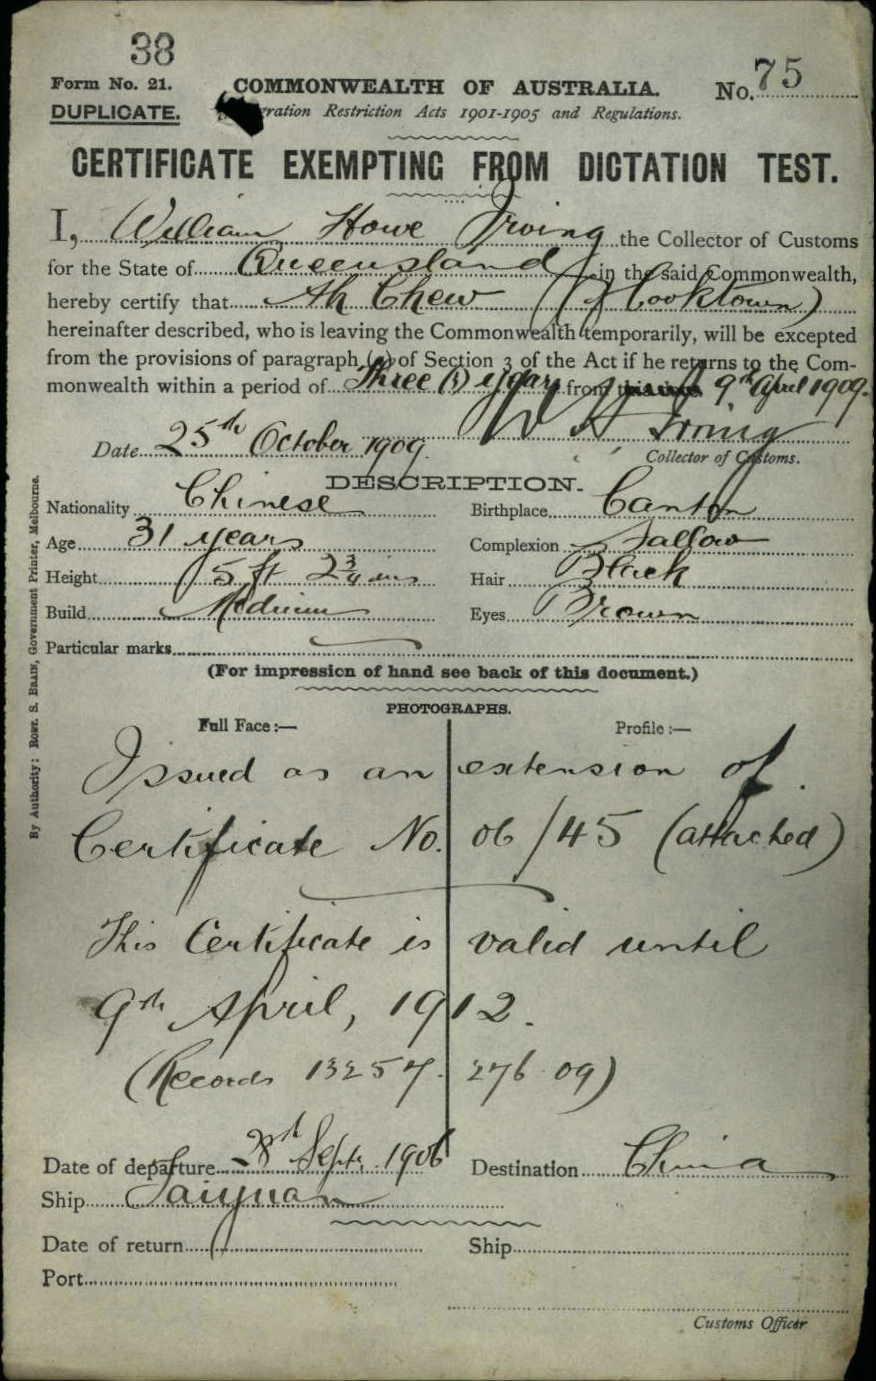 38
Form No. 21.
COMMONWEALTH OF AUSTRALIA.
No. 75
DUPLICATE.
gration Restriction Acts 1901-1905 and Regulations.
CERTIFICATE EXEMPTING FROM DICTATION TEST.
I, William Howe Irving the Collector of Customs
for the State of Queensland in the said Commonwealth,
hereby certify that Ah Chew (of Cooktown)
hereinafter described, who is leaving the Commonwealth temporarily, will be excepted
from the provisions of paragraph (a) of Section 3 of the Act if he returns to the Com-
monwealth within a period of Three (3) years from 9th April 1909.
W H Irving
Date 25th October 1909.
Collector of Customs.
DESCRIPTION.
Nationality Chinese Birthplace Canton
Age 31 years Complexion Sallow
Height 5 ft 2 3/4 ins Hair Black
Build Medium Eyes Brown
Particular marks
(For impression of hand see back of this document.)
PHOTOGRAPHS.
Full Face :— Profile :—
Issued as an extension of
Certificate No. 06/45 (attached)
This Certificate is valid until
9th April, 1912.
(Records 13257. 276 09)
Date of departure 28th Sept. 1906 Destination China
Ship Taiyuan
Date of return Ship
Port
Customs Officer
By Authority: ROBT. S. BRAIN, Government Printer, Melbourne.